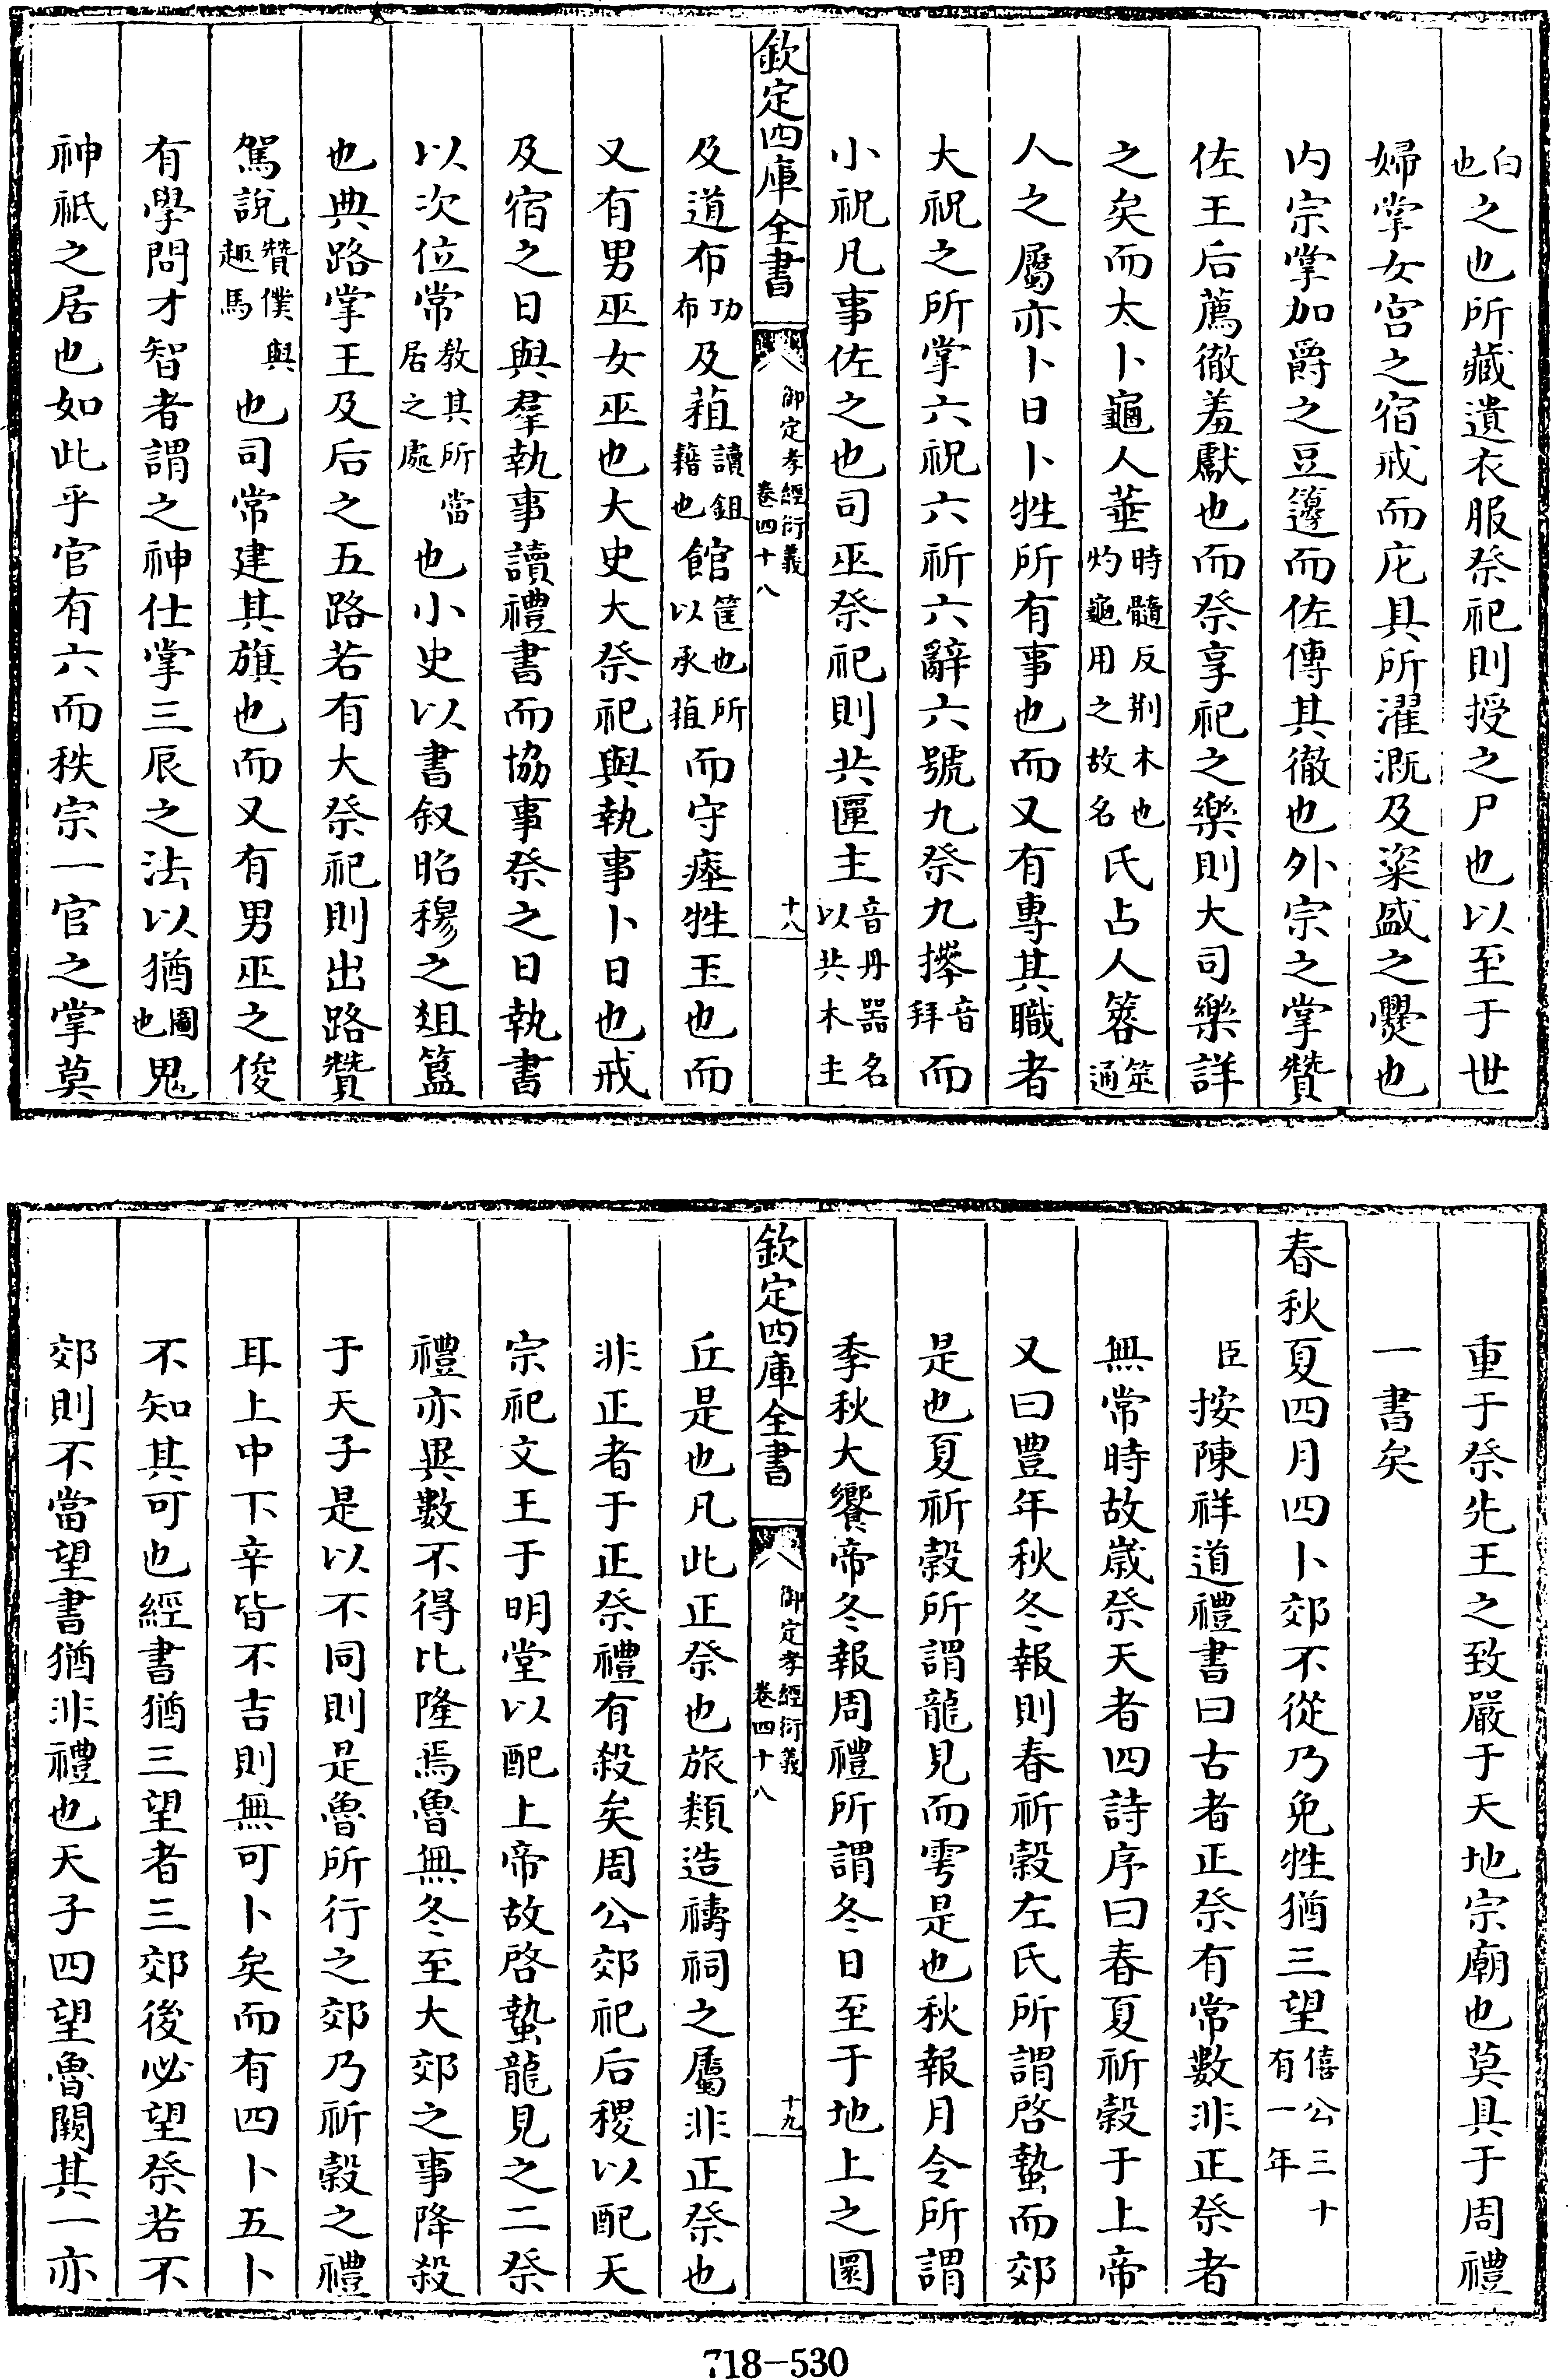 白也之也所藏遺衣服祭祀則授之尸也以至于世
婦掌女宮之宿戒而庀具所濯溉及粢盛之爨也
内宗掌加爵之豆籩而佐傳其徹也外宗之掌贊
佐王后薦徹羞獻也而祭享祀之樂則大司樂詳
之矣而太卜龜人菙時髓反荆木也灼龜用之故名氏占人簭筮通
人之屬亦卜日卜牲所有事也而又有專其職者
大祝之所掌六祝六祈六辭六號九祭九㩐音拜而
小祝凡事佐之也司巫祭祀則共匰主音丹器名以共木主
欽定四庫全書 御定孝經衍義卷四十八 十八
及道布功布及蒩讀鉏籍也館筐也所以承蒩而守瘞牲玉也而
又有男巫女巫也大史大祭祀與執事卜日也戒
及宿之日與羣執事讀禮書而協事祭之日執書
以次位常教其所當居之處也小史以書叙昭穆之俎簋
也典路掌王及后之五路若有大祭祀則出路贊
駕說贊僕與趣馬也司常建其旗也而又有男巫之俊
有學問才智者謂之神仕掌三辰之法以猶圖也鬼
神祇之居也如此乎官有六而秩宗一官之掌莫
重于祭先王之致嚴于天地宗廟也莫具于周禮
一書矣
春秋夏四月四卜郊不從乃免牲猶三望僖公三十有一年
臣按陳祥道禮書曰古者正祭有常數非正祭者
無常時故歲祭天者四詩序曰春夏祈穀于上帝
又曰豐年秋冬報則春祈穀左氏所謂啓蟄而郊
是也夏祈穀所謂龍見而雩是也秋報月令所謂
季秋大饗帝冬報周禮所謂冬日至于地上之圜
欽定四庫全書 御定孝經衍義卷四十八 十九
丘是也凡此正祭也旅類造禱祠之屬非正祭也
非正者于正祭禮有殺矣周公郊祀后稷以配天
宗祀文王于明堂以配上帝故啓蟄龍見之二祭
禮亦異數不得比隆焉魯無冬至大郊之事降殺
于天子是以不同則是魯所行之郊乃祈穀之禮
耳上中下辛皆不吉則無可卜矣而有四卜五卜
不知其可也經書猶三望者三郊後必望祭若不
郊則不當望書猶非禮也天子四望魯闕其一亦
718-530